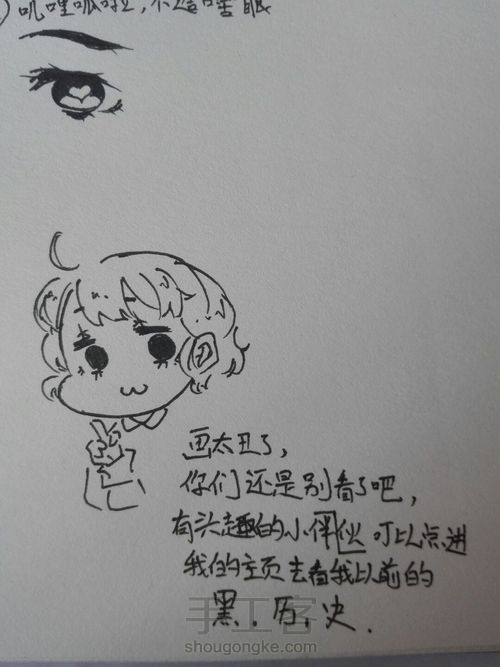 叽哩呱啦,不造啥眼
画太丑了,
你们还是别看了吧,
有兴趣的小伴伙可以点进
我的主页去看我以前的
黑.历.史.
手工客
shougongke.com